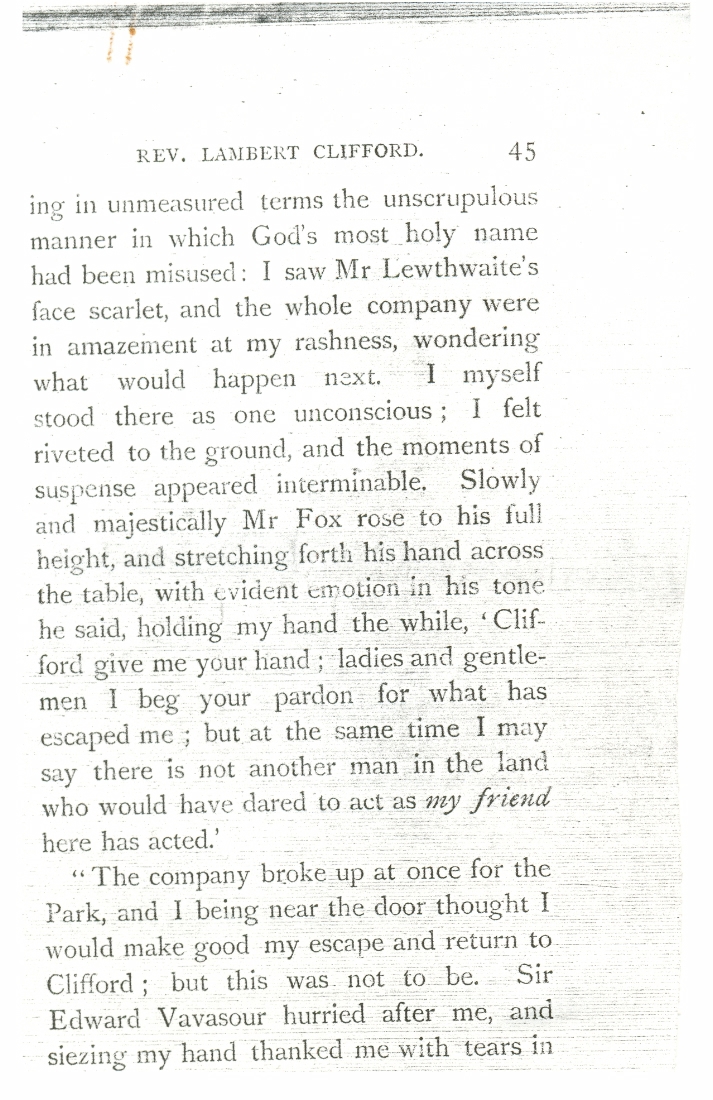 REV. LAMBERT CLIFFORD. 45
ing in unmeasured terms the unscrupulous
manner in which God's most holy name
had been misused: I saw Mr Lewthwaite's
face scarlet, and the whole company were
in amazement at my rashness, wondering
what would happen next. I myself
stood there as one unconscious; I felt
riveted to the ground, and the moments of
suspense appeared interminable. Slowly
and majestically Mr Fox rose to his full
height, and stretching forth his hand across
the table, with evident emotion in his tone
he said, holding my hand the while, ‘Clif-
ford give me your hand; ladies and gentle-
men I beg your pardon for what has
escaped me; but at the same time I may
say there is not another man in the land
who would have dared to act as my friend
here has acted.’
“The company broke up at once for the
Park, and I being near the door thought I
would make good my escape and return to
Clifford; but this was not to be. Sir
Edward Vavasour hurried after me, and
siezing my hand thanked me with tears in